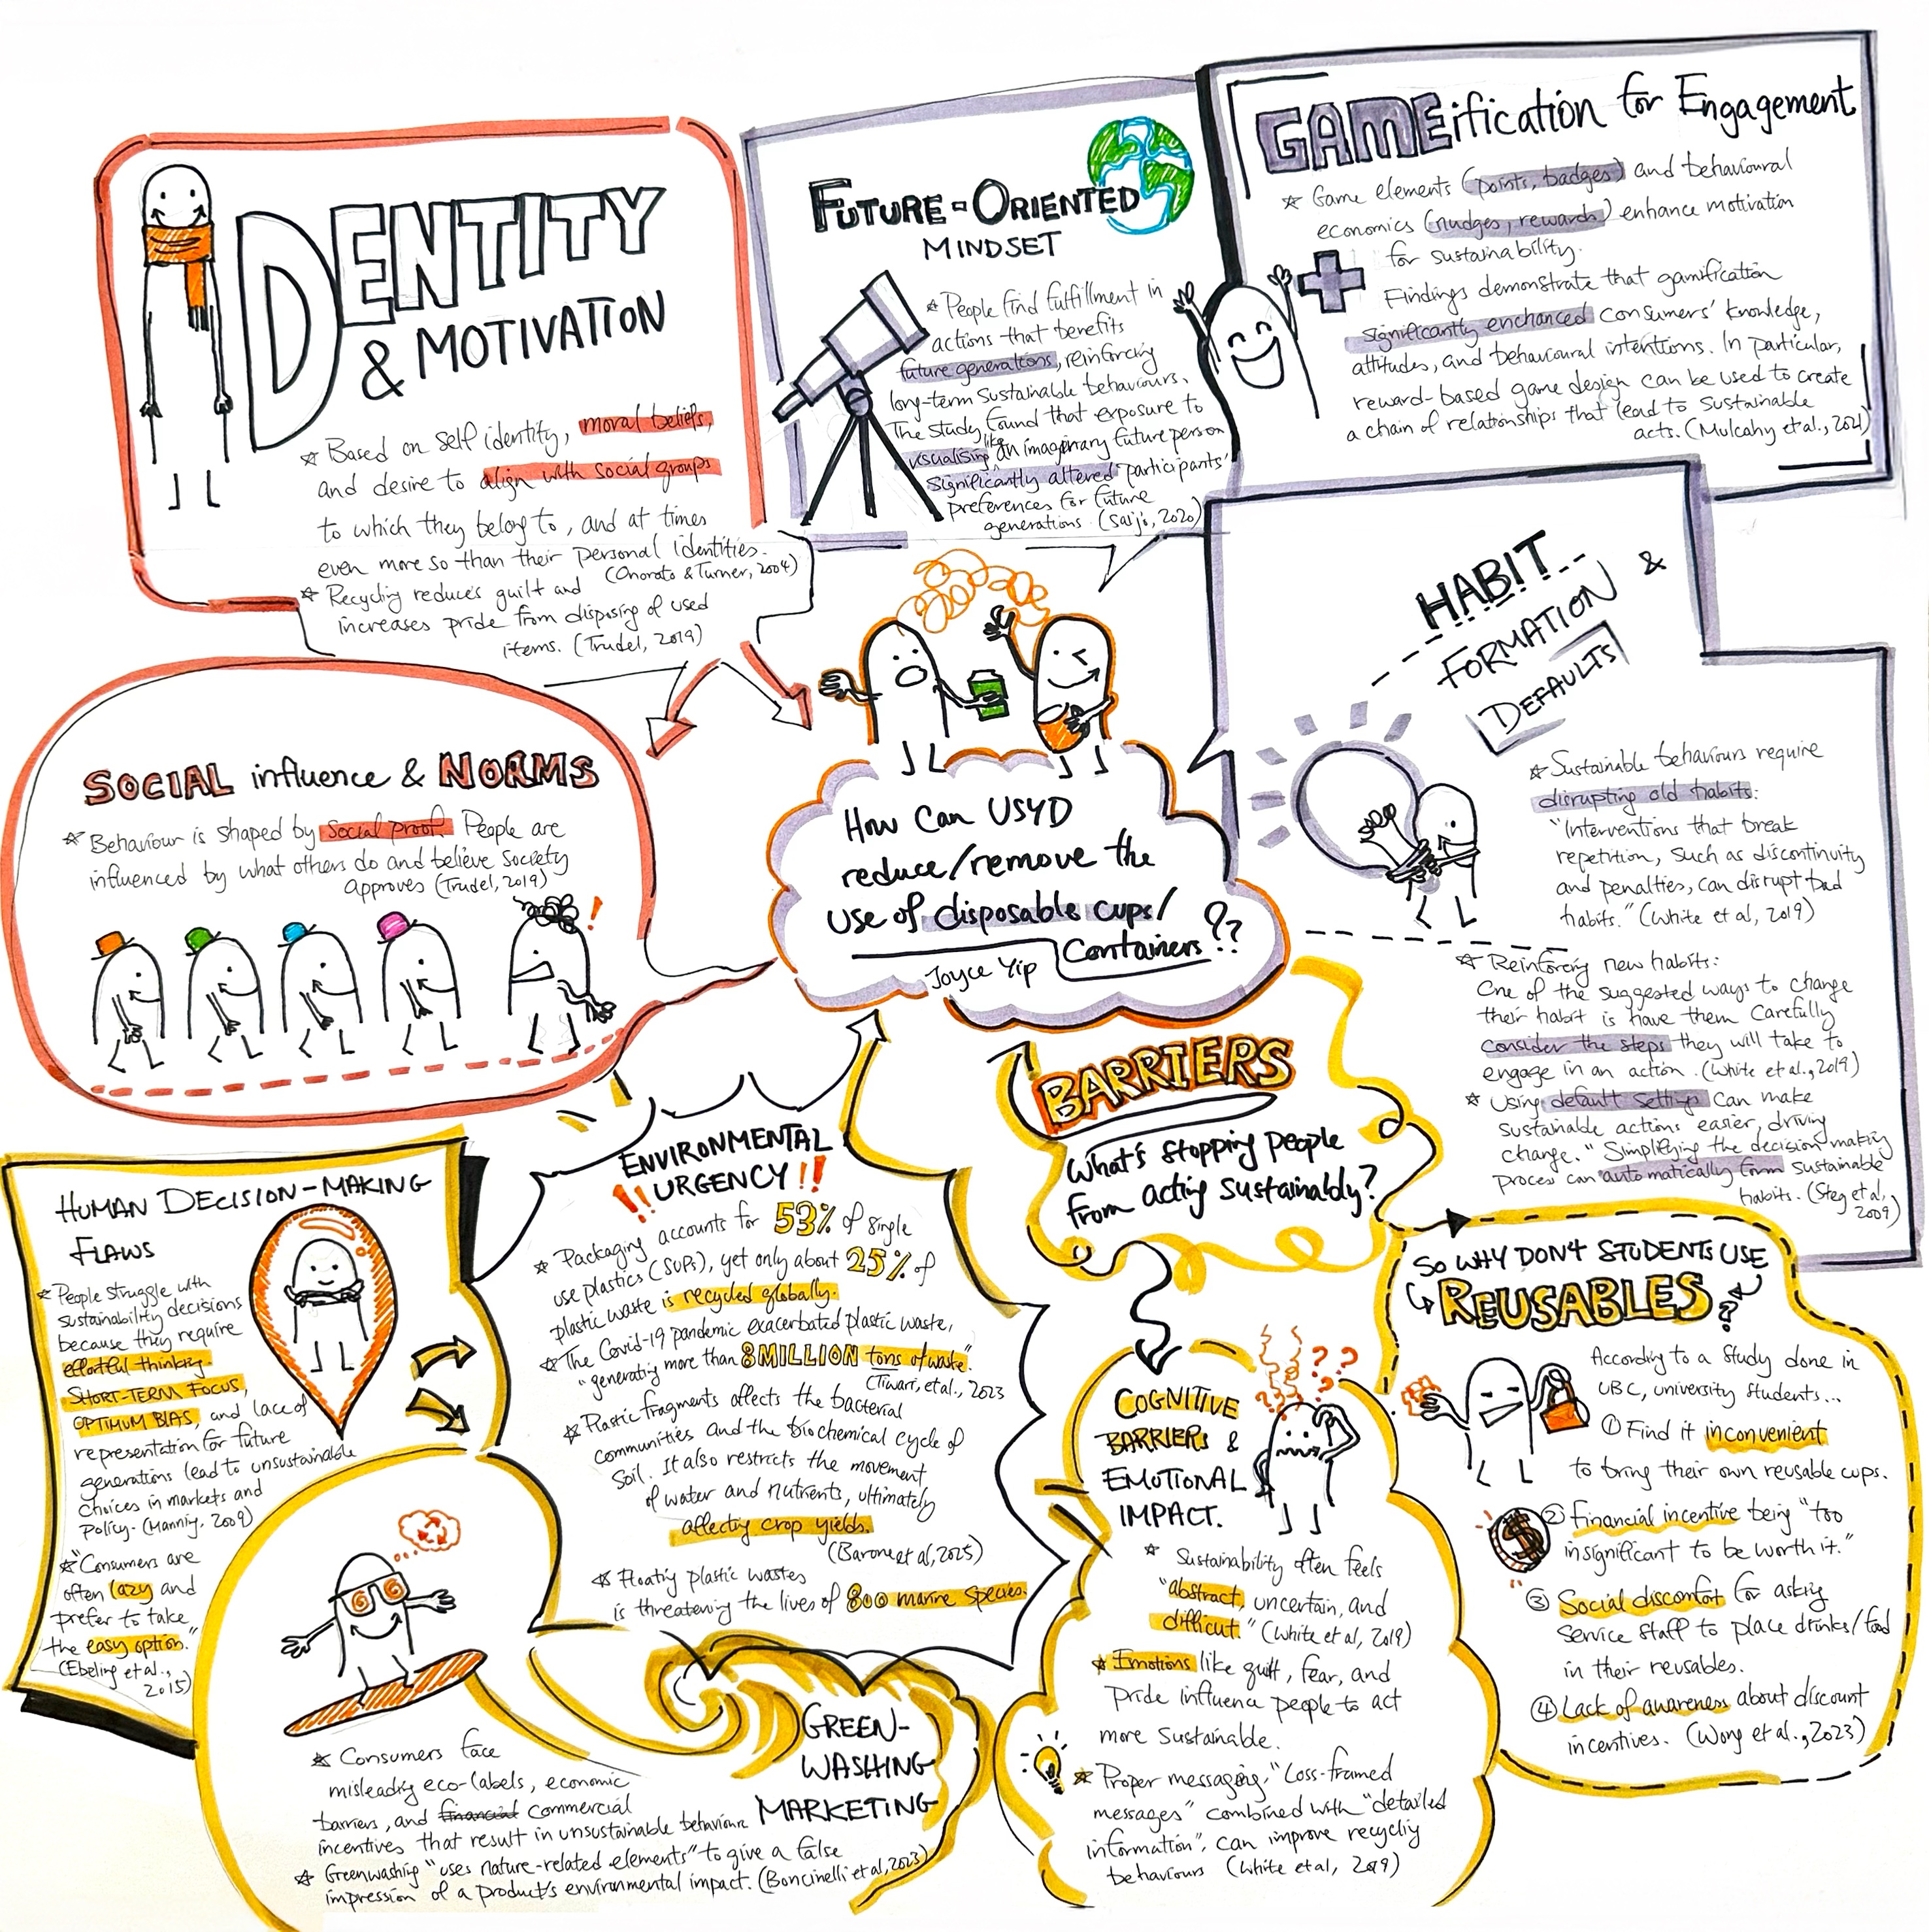 IDENTITY
& MOTIVATION
☆ Based on self identity, moral beliefs,
and desire to align with social groups
to which they belong to, and at times
even more so than their personal identities.
(Onorato & Turner, 2004)
☆ Recycling reduces guilt and
increases pride from disposing of used
items. (Trudel, 2019)
FUTURE-ORIENTED
MINDSET
☆ People find fulfillment in
actions that benefits
future generations, reinforcing
long-term sustainable behaviours.
The study found that exposure to
like
visualising an imaginary future person
significantly altered participants'
preferences for future
generations. (Saijo, 2020)
GAMEification for Engagement
☆ Game elements (points, badges) and behavioural
economics (nudges, rewards) enhance motivation
for sustainability.
Findings demonstrate that gamification
significantly enchanced consumers' knowledge,
attitudes, and behavioural intentions. In particular,
reward-based game design can be used to create
a chain of relationships that lead to sustainable
acts. (Mulcahy et al., 2021)
HABIT
FORMATION &
DEFAULTS
☆ Sustainable behaviours require
disrupting old habits:
"Interventions that break
repetition, such as discontinuity
and penalties, can disrupt bad
habits." (White et al, 2019)
☆ Reinforcing new habits:
One of the suggested ways to change
their habit is have them carefully
consider the steps they will take to
engage in an action. (White et al., 2019)
☆ Using default settings can make
sustainable actions easier, driving
change. "Simplifying the decision making
process can automatically form sustainable
habits. (Steg et al.,
2009)
SOCIAL influence & NORMS
☆ Behaviour is shaped by social proof. People are
influenced by what others do and believe society
approves (Trudel, 2019)
!
How Can USYD
reduce/remove the
use of disposable cups/
Containers??
Joyce Yip
BARRIERS
What's stopping people
from acting sustainably?
HUMAN DECISION-MAKING
FLAWS
☆ People struggle with
sustainability decisions
because they require
effortful thinking.
SHORT-TERM FOCUS,
OPTIMUM BIAS, and lack of
representation for future
generations lead to unsustainable
choices in markets and
policy. (Mannig, 2009)
☆ "Consumers are
often lazy and
prefer to take
the easy option."
(Ebeling et al.,
2015)
ENVIRONMENTAL
!! URGENCY !!
☆ Packaging accounts for 53% of single
use plastics (SUPs), yet only about 25% of
plastic waste is recycled globally.
☆ The Covid-19 pandemic exacerbated plastic waste,
"generating more than 8 MILLION tons of waste".
(Tiwari, et al., 2023
☆ Plastic fragments affects the bacterial
communities and the biochemical cycle of
soil. It also restricts the movement
of water and nutrients, ultimately
affecting crop yields.
(Barone et al, 2025)
☆ Floating plastic wastes
is threatening the lives of 800 marine species.
GREEN-
WASHING
MARKETING
☆ Consumers face
misleading eco-labels, economic
barriers, and financial commercial
incentives that result in unsustainable behaviour
☆ Greenwashing "uses nature-related elements" to give a false
impression of a product's environmental impact. (Boncinelli et al, 2023)
COGNITIVE
BARRIERS &
EMOTIONAL
IMPACT.
? ? ? ?
☆ Sustainability often feels
"abstract, uncertain, and
difficult." (White et al, 2019)
☆ Emotions like guilt, fear, and
pride influence people to act
more sustainable.
☆ Proper messaging, "Loss-framed
messages" combined with "detailed
information", can improve recycling
behaviours (White et al, 2019)
SO WHY DON'T STUDENTS USE
REUSABLES?
According to a study done in
UBC, university students...
① Find it inconvenient
to bring their own reusable cups.
$
② Financial incentive being "too
insignificant to be worth it."
③ Social discomfort for asking
service staff to place drinks/food
in their reusables.
④ Lack of awareness about discount
incentives. (Wong et al., 2023)